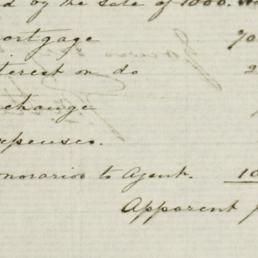 d by the sale of 1000.
ortgage 70
terest on do 2
change
xpenses.
onorarios to Agent. 10
Apparent